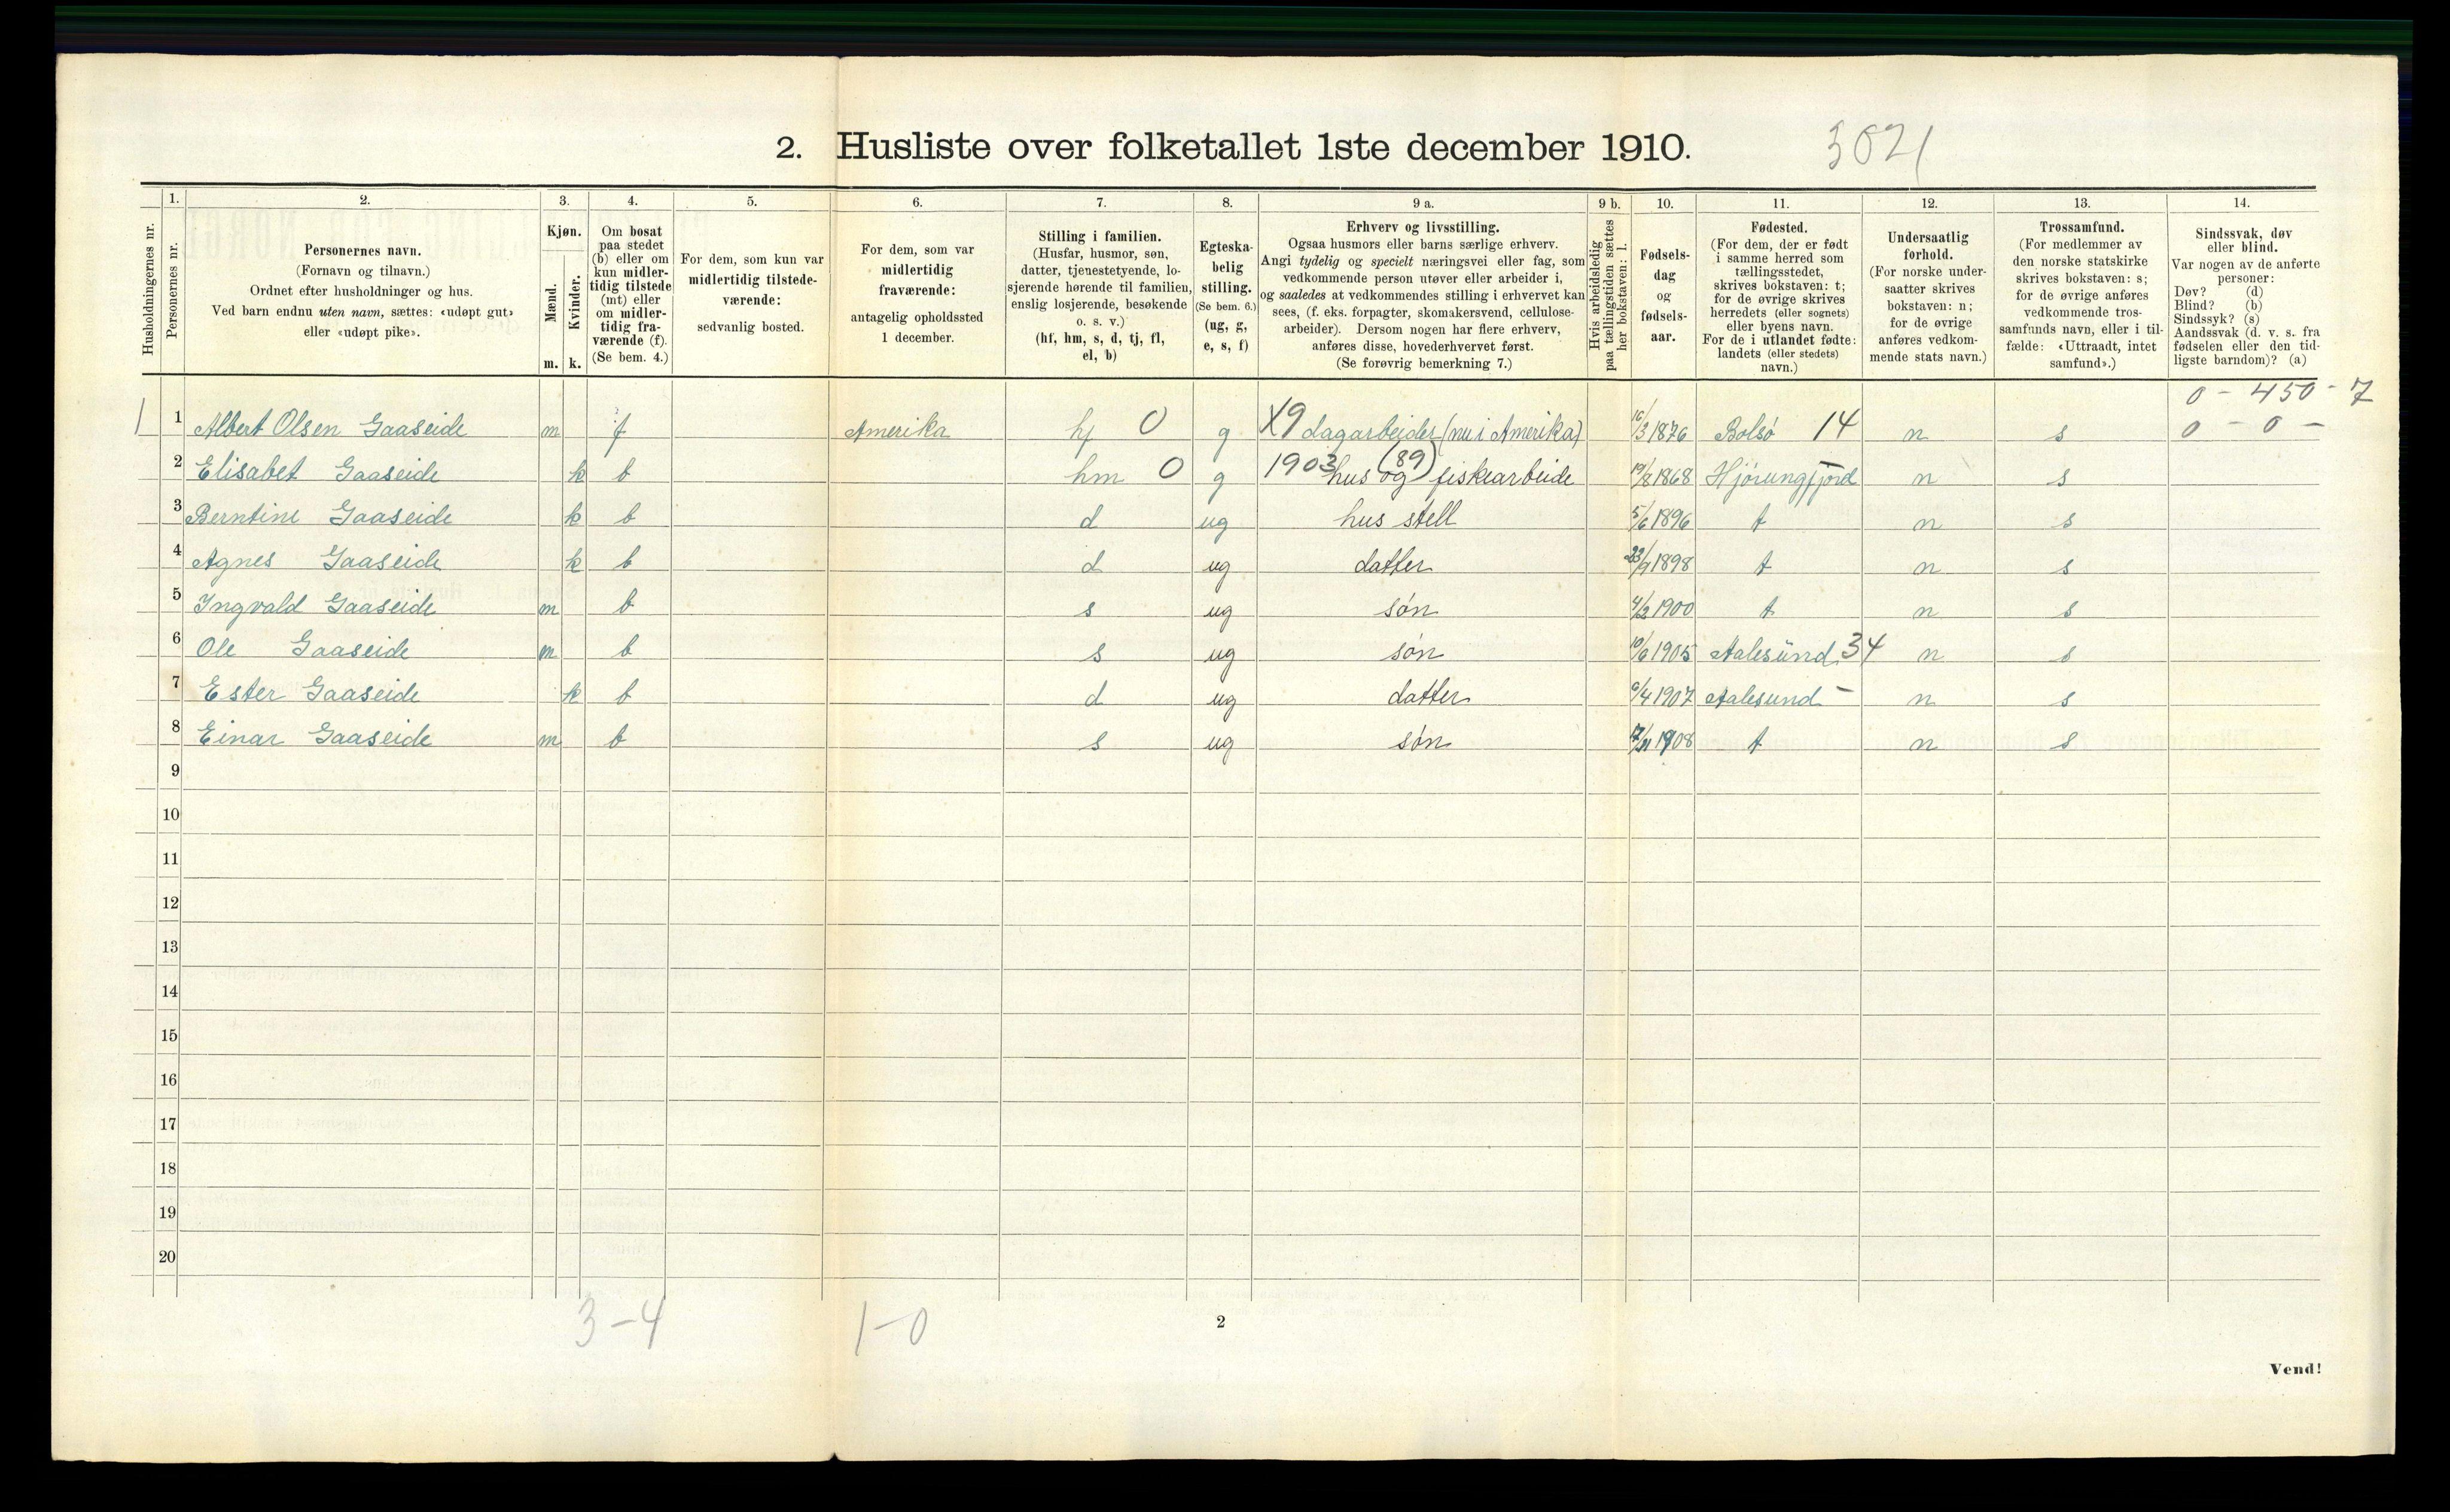 2. Husliste over folketallet 1ste december 1910. 3021
Husholdningernes nr.
1. Personernes nr.
2. Personernes navn.
(Fornavn og tilnavn.)
Ordnet efter husholdninger og hus.
Ved barn endnu uten navn, sættes: «udøpt gut»
eller «udøpt pike».
3. Kjøn.
Mænd. m.
Kvinder. k.
4. Om bosat
paa stedet
(b) eller om
kun midler-
tidig tilstede
(mt) eller
om midler-
tidig fra-
værende (f).
(Se bem. 4.)
5. For dem, som kun var
midlertidig tilstede-
værende:
sedvanlig bosted.
6. For dem, som var
midlertidig
fraværende:
antagelig opholdssted
1 december.
7. Stilling i familien.
(Husfar, husmor, søn,
datter, tjenestetyende, lo-
sjerende hørende til familien,
enslig losjerende, besøkende
o. s. v.)
(hf, hm, s, d, tj, fl,
el, b)
8. Egteska-
belig
stilling.
(Se bem. 6.)
(ug, g,
e, s, f)
9 a. Erhverv og livsstilling.
Ogsaa husmors eller barns særlige erhverv.
Angi tydelig og specielt næringsvei eller fag, som
vedkommende person utøver eller arbeider i,
og saaledes at vedkommendes stilling i erhvervet kan
sees, (f. eks. forpagter, skomakersvend, cellulose-
arbeider). Dersom nogen har flere erhverv,
anføres disse, hovederhvervet først.
(Se forøvrig bemerkning 7.)
9 b. Hvis arbeidsledig
paa tællingstiden sættes
her bokstaven: l.
10. Fødsels-
dag
og
fødsels-
aar.
11. Fødested.
(For dem, der er født
i samme herred som
tællingsstedet,
skrives bokstaven: t;
for de øvrige skrives
herredets (eller sognets)
eller byens navn.
For de i utlandet fødte:
landets (eller stedets)
navn.)
12. Undersaatlig
forhold.
(For norske under-
saatter skrives
bokstaven: n;
for de øvrige
anføres vedkom-
mende stats navn.)
13. Trossamfund.
(For medlemmer av
den norske statskirke
skrives bokstaven: s;
for de øvrige anføres
vedkommende tros-
samfunds navn, eller i til-
fælde: «Uttraadt, intet
samfund».)
14. Sindssvak, døv
eller blind.
Var nogen av de anførte
personer:
Døv? (d)
Blind? (b)
Sindssyk? (s)
Aandssvak (d. v. s. fra
fødselen eller den tid-
ligste barndom)? (a)
0 - 450 - 7
1 1 Albert Olsen Gaaseide m f Amerika hf 0 g X9 dagarbeider (nu i Amerika) 16/3 1876 Bolsø 14 n s 0 - 0 -
2 Elisabet Gaaseide k b hm 0 g 1903 hus og (89) fiskearbeide 19/8 1868 Hjørungfjord n s
3 Berntine Gaaseide k b d ug hus stell 5/6 1896 t n s
4 Agnes Gaaseide k b d ug datter 23/9 1898 t n s
5 Ingvald Gaaseide m b s ug søn 4/2 1900 t n s
6 Ole Gaaseide m b s ug søn 10/6 1905 Aalesund 34 n s
7 Ester Gaaseide k b d ug datter 6/4 1907 Aalesund - n s
8 Einar Gaaseide m b s ug søn 1908 t n s
9
10
11
12
13
14
15
16
17
18
19
20
3-4 1-0
2
Vend!